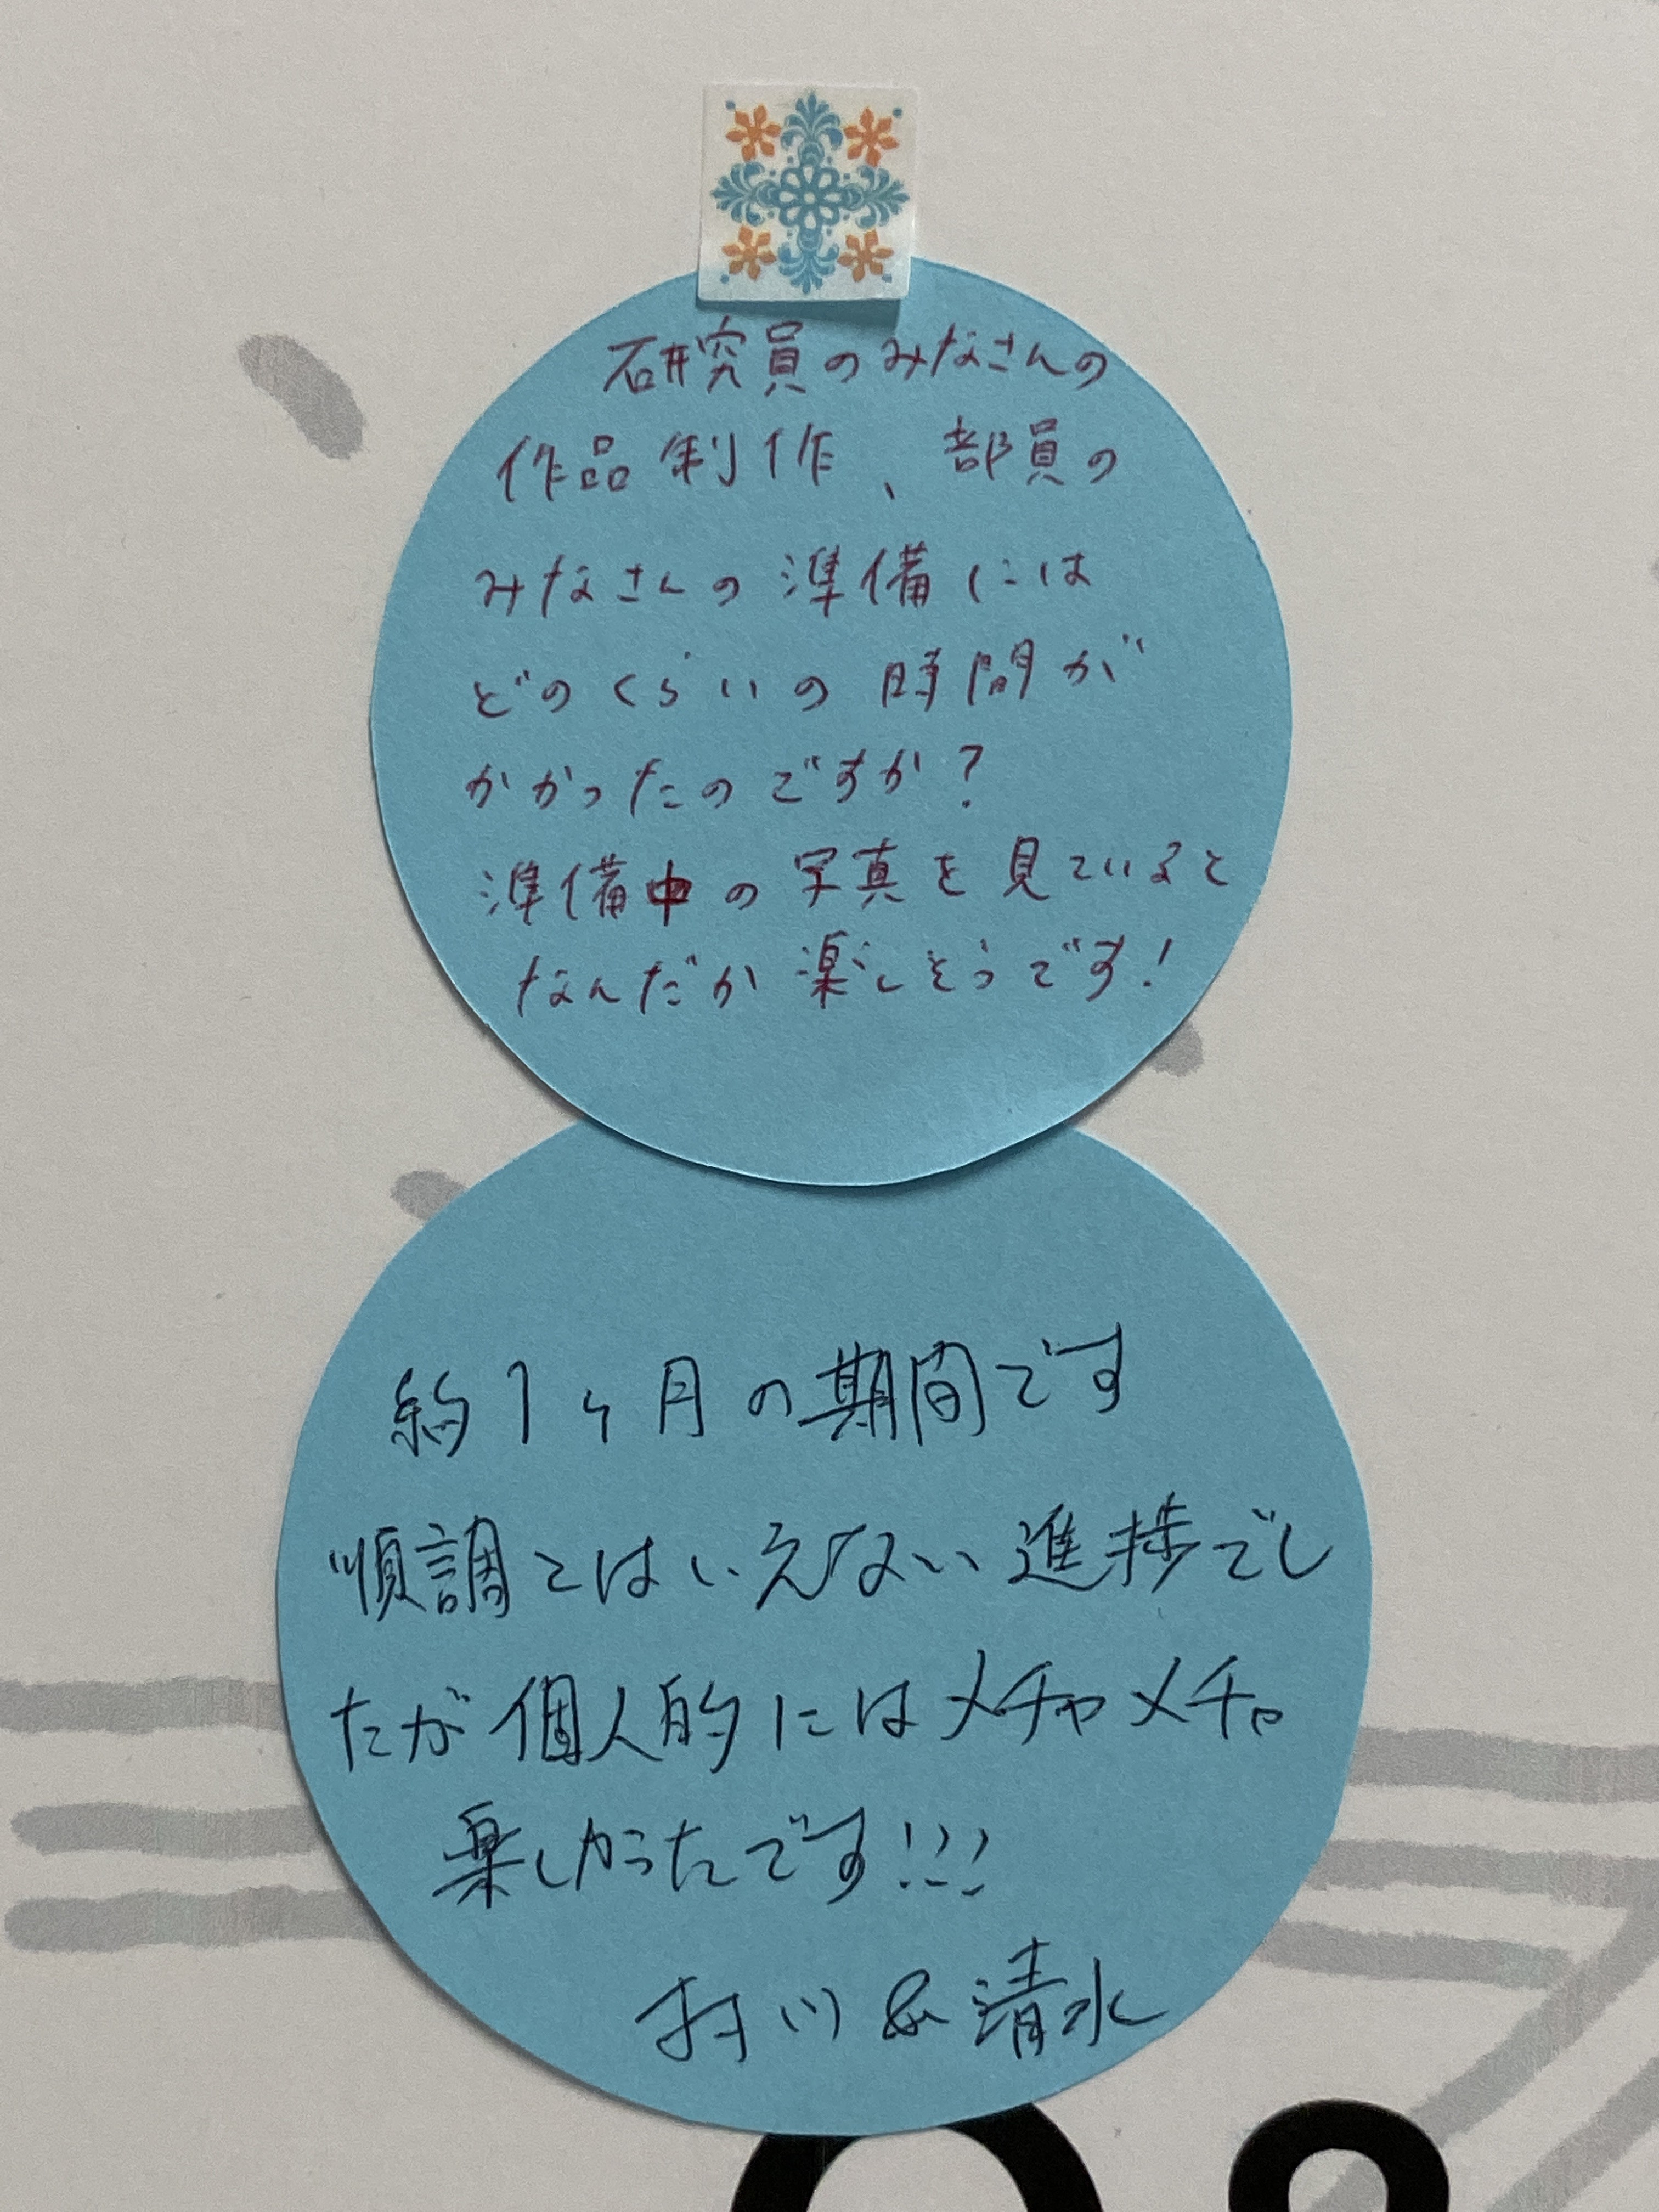 研究員のみなさんの
作品制作、部員の
みなさんの準備には
どのくらいの時間が
かかったのですか?
準備中の写真を見ていると
なんだか楽しそうです!
約1ヶ月の期間です
順調とはいえない進捗でし
たが個人的にはメチャメチャ
楽しかったです!!!
村川&清水